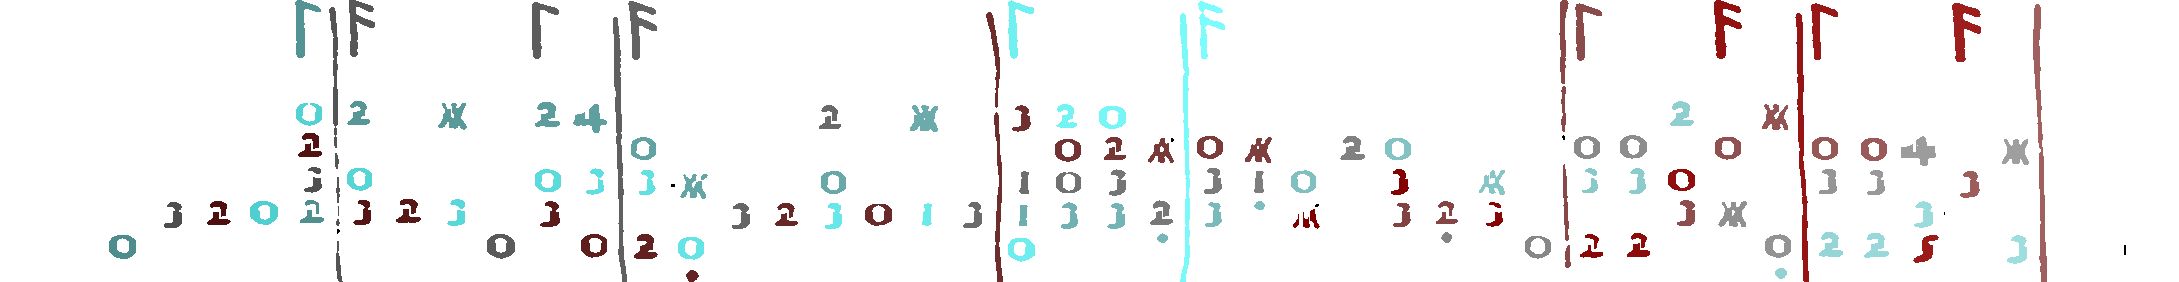 Γ F Γ F Γ F Γ F Γ F
0 2 Ж 2 4 2 Ж 3 2 0 2 Ж
2 0 0 2 Ж 0 Ж 2 0 0 0 0 0 0 4 Ж
3 0 0 3 3 Ж 0 1 0 3 3 1 0 3 Ж 3 3 0 3 3 3
3 2 0 2 3 2 3 3 3 2 3 0 1 3 1 3 3 2 3 Ж 3 2 3 3 Ж 3
0 0 0 2 0 0 0 2 2 0 2 2 5 3